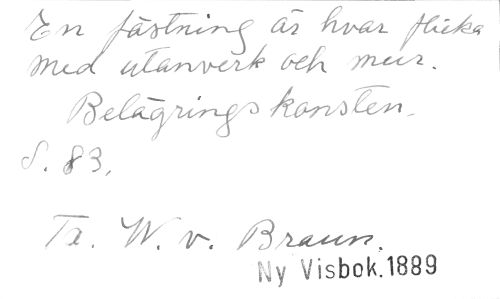 En fästning är hvar flicka
med utanverk och mur.
Belägringskonsten.
S. 83.
Tx. W. v. Braun.
Ny Visbok. 1889